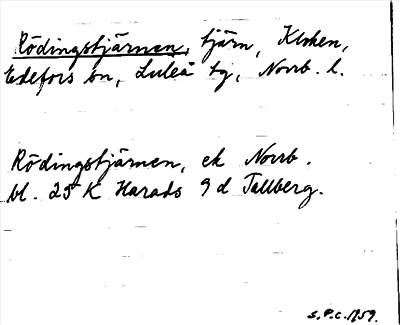 Rödingstjärnen, tjärn, Kloken,
Edefors sn, Luleå tg, Norrb. l.
Rödingstjärnen, ek Norrb.
bl. 25 K Harads 9 d Tallberg.
S.P.C. 1959.